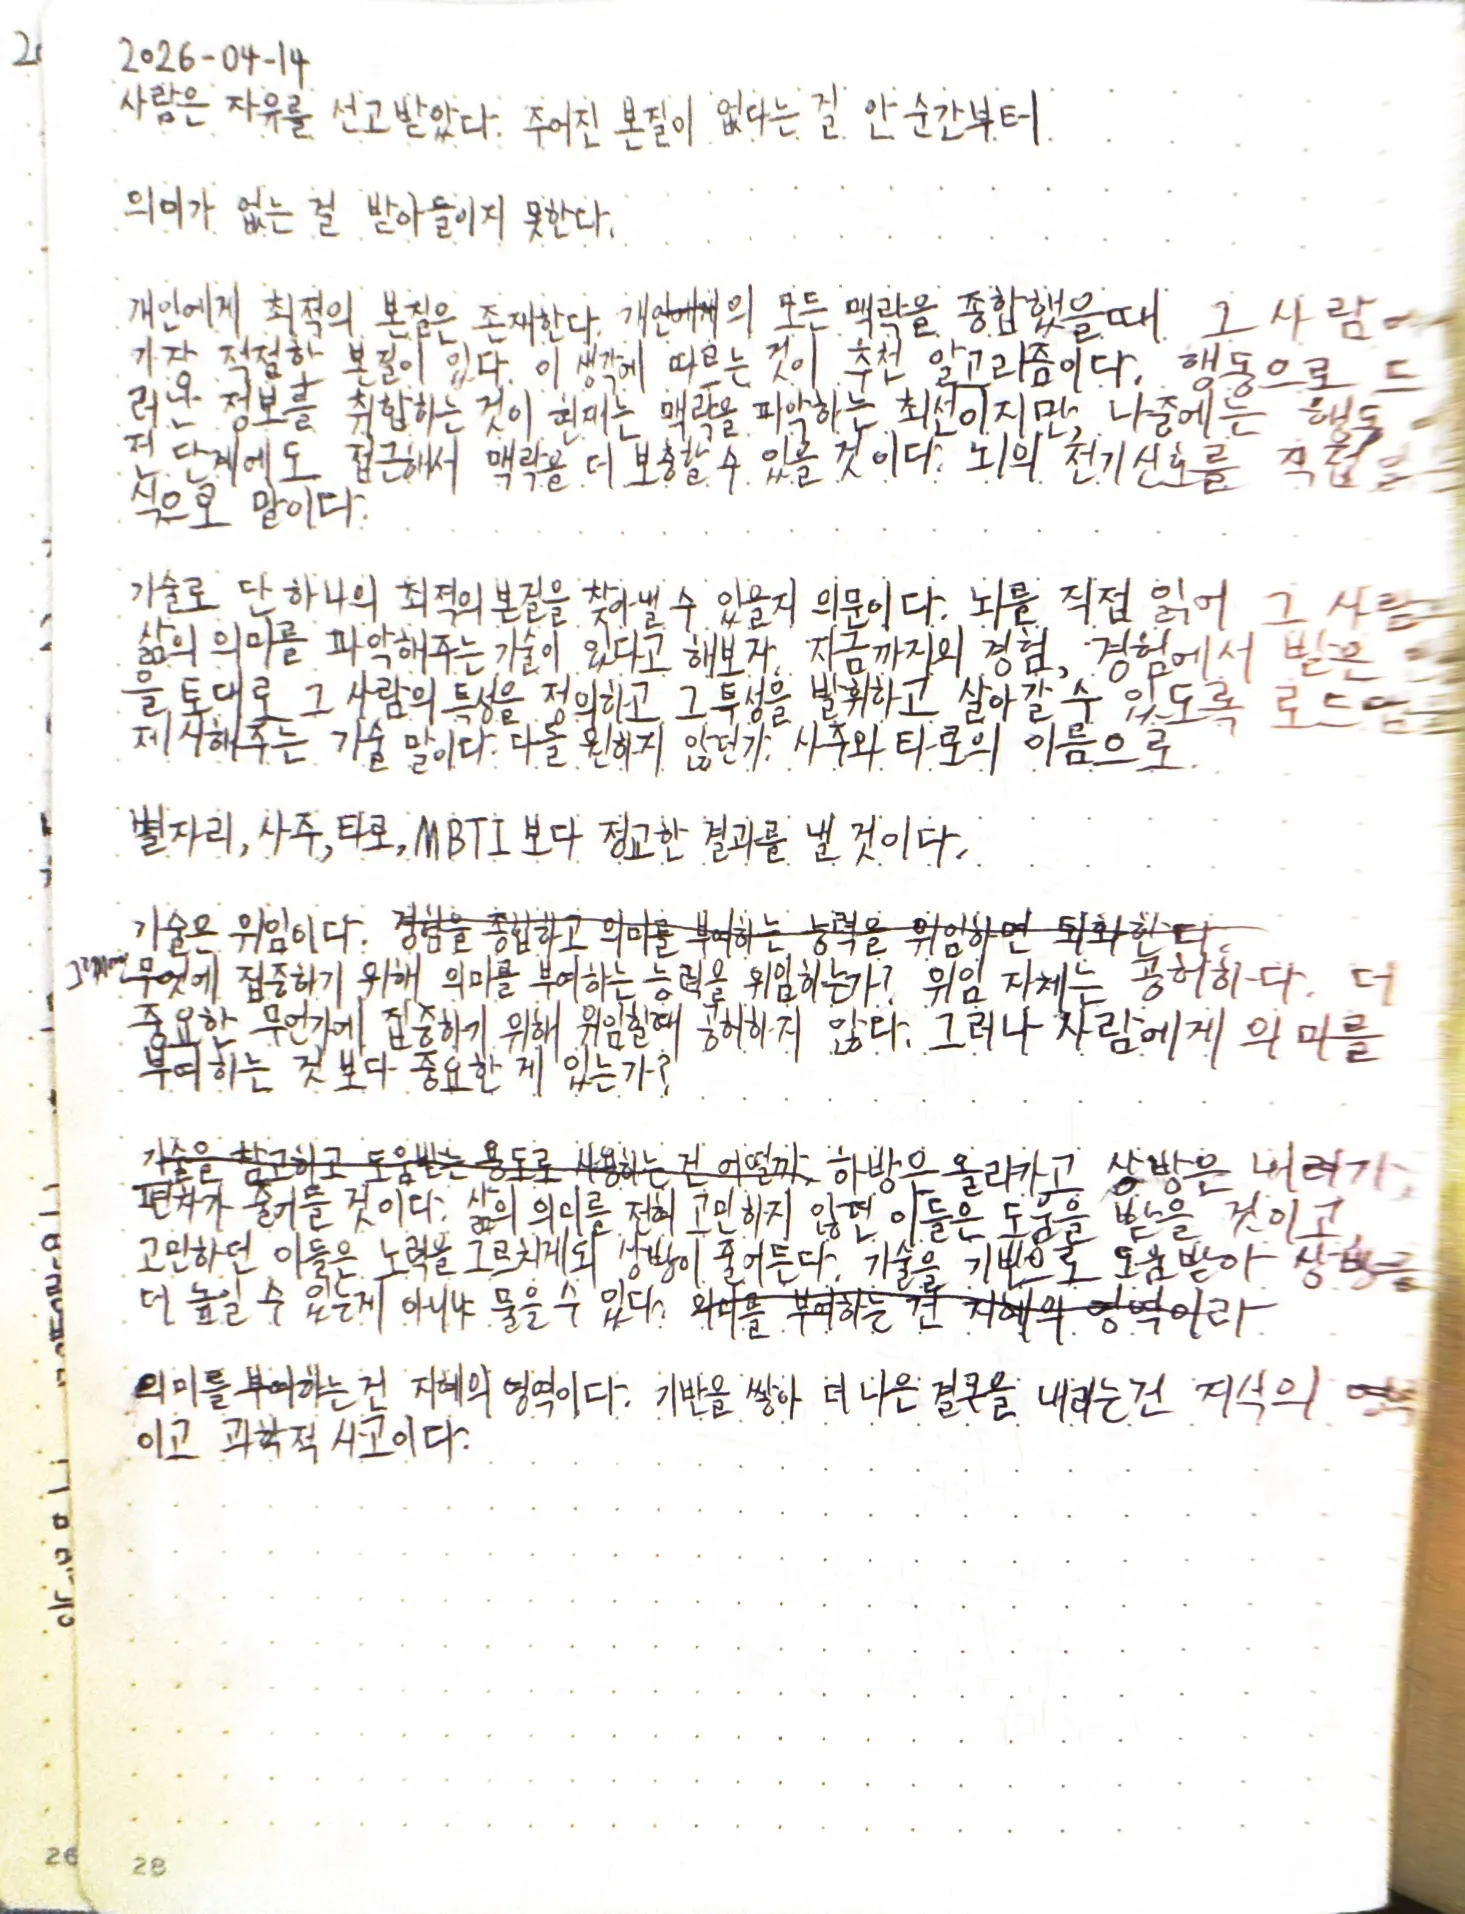 2026-04-14
사람은 자유를 선고받았다. 주어진 본질이 없다는 걸 안 순간부터
의미가 없는 걸 받아들이지 못한다.
개인에게 최적의 본질은 존재한다. 개인에게의 모든 맥락을 종합했을때 그 사람에
가장 적절한 본질이 있다. 이 생각에 따르는 것이 추천 알고리즘이다. 행동으로 드
러난 정보를 취합하는 것이 현재는 맥락을 파악하는 최선이지만, 나중에는 행동
전 단계에도 접근해서 맥락을 더 보충할 수 있을 것이다. 뇌의 전기신호를 직접
식으로 말이다.
기술로 단 하나의 최적의 본질을 찾아낼 수 있을지 의문이다. 뇌를 직접 읽어 그 사람
삶의 의미를 파악해주는 기술이 있다고 해보자. 지금까지의 경험, 경험에서 받은
을 토대로 그 사람의 특성을 정의하고 그 특성을 발휘하고 살아갈 수 있도록 로드맵을
제시해주는 기술 말이다. 다들 원하지 않던가. 사주와 타로의 이름으로.
별자리, 사주, 타로, MBTI 보다 정교한 결과를 낼 것이다.
기술은 위임이다. 경험을 종합하고 의미를 부여하는 능력을 위임하면 퇴화한다.
무엇에 집중하기 위해 의미를 부여하는 능력을 위임하는가? 위임 자체는 공허하다. 더
중요한 무언가에 집중하기 위해 위임할때 공허하지 않다. 그러나 사람에게 의미를
부여하는 것 보다 중요한 게 있는가?
기술을 참고하고 도움받는 용도로 사용하는 건 어떨까. 하방은 올라가고 상방은 내려가
편차가 줄어들 것이다. 삶의 의미를 전혀 고민하지 않던 이들은 도움을 받을 것이고
고민하던 이들은 노력을 그르치게 되 상방이 줄어든다. 기술을 기반으로 도움받아 상방을
더 높일 수 있는게 아니냐 물을 수 있다. 의미를 부여하는 건 지혜의 영역이라
의미를 부여하는 건 지혜의 영역이다. 기반을 쌓아 더 나은 결론을 내리는건 지식의 영역
이고 과학적 사고이다.
26
28